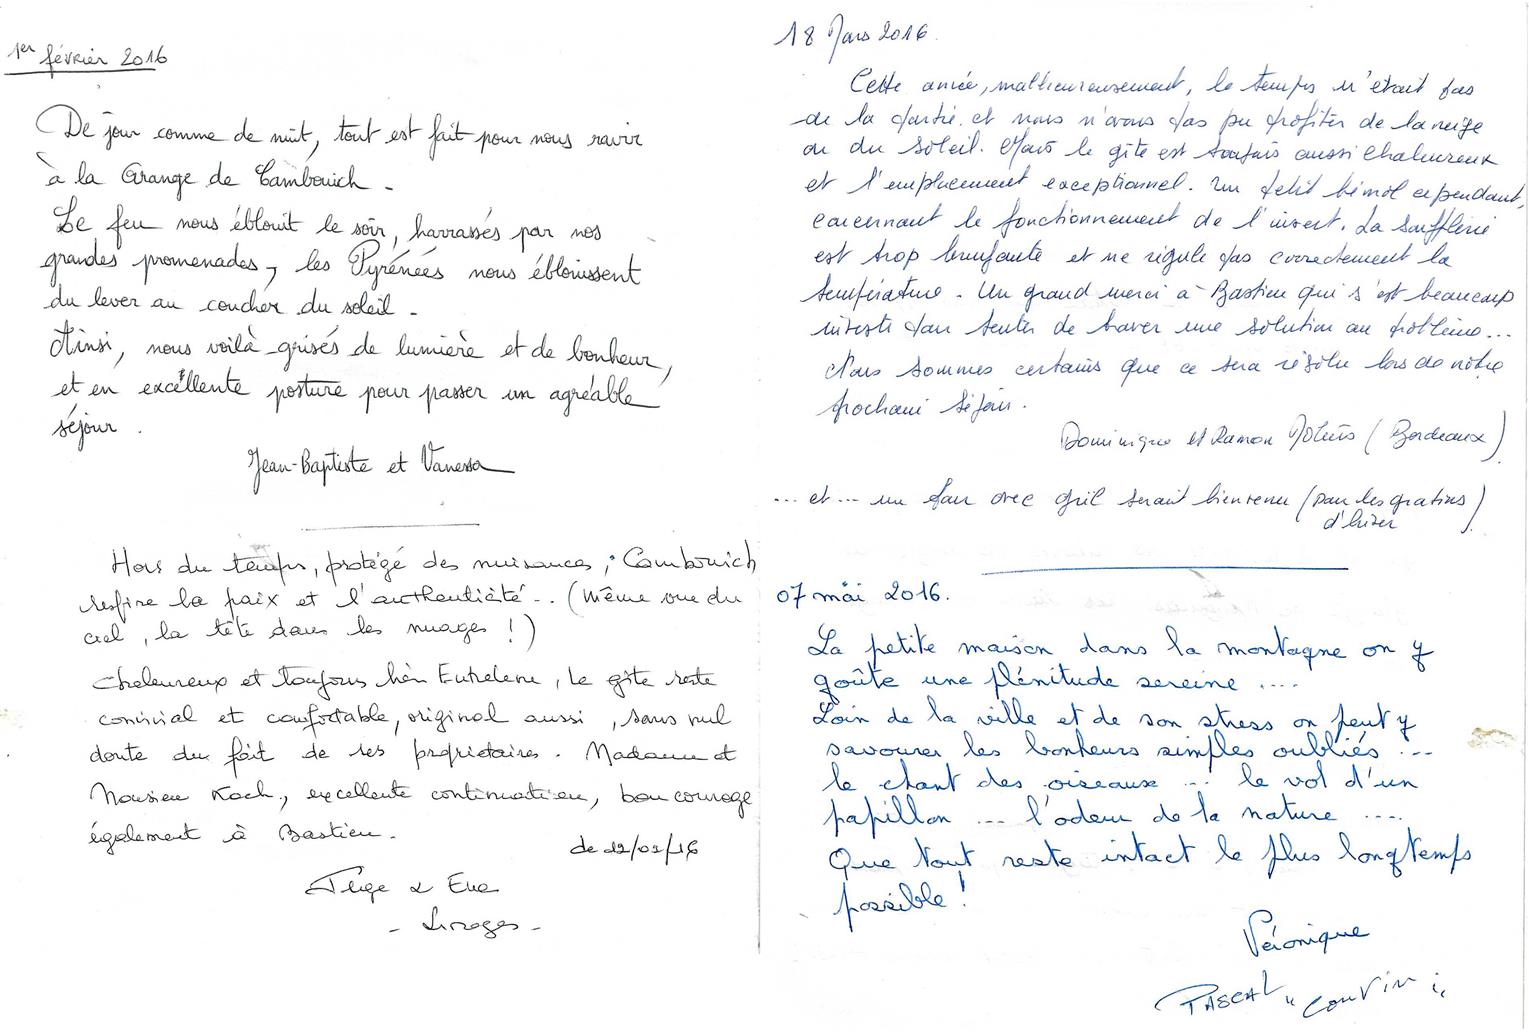 1er février 2016
De jour comme de nuit, tout est fait pour nous ravir
à la Grange de Cambouich.
Le feu nous éblouit le soir, harrassés par nos
grandes promenades, les Pyrénées nous éblouissent
du lever au coucher du soleil.
Ainsi, nous voilà grisés de lumière et de bonheur,
et en excellente posture pour passer un agréable
séjour.
Jean-Baptiste et Vanessa
Hors du temps, protégé des nuisances, Cambouich
respire la paix et l'authenticité... (même vue du
ciel, la tête dans les nuages !)
Chaleureux et toujours bien Entretenu, Le gîte reste
convivial et confortable, original aussi, sans nul
doute du fait de ses propriétaires. Madame et
Monsieur Koch, excellente continuation, bon courage
également à Bastien.
de 12/02/16
& Eva
- Limoges -
18 Mars 2016.
Cette année, malheureusement, le temps n'était pas
de la partie et nous n'avons pas pu profiter de la neige
ou du soleil. Mais le gîte est toujours aussi chaleureux
et l'emplacement exceptionnel. Un petit bémol cependant,
concernant le fonctionnement de l'insert. La soufflerie
est trop bruyante et ne régule pas correctement la
température. Un grand merci à Bastien qui s'est beaucoup
investi pour tenter de trouver une solution au problème...
Nous sommes certains que ce sera résolu lors de notre
prochain séjour.
Dominique et Ramon (Bordeaux)
... et ... un four avec gril serait bienvenu (pour les gratins
d'hiver)
07 mai 2016.
La petite maison dans la montagne on y
goûte une plénitude sereine ....
Loin de la ville et de son stress on peut y
savourer les bonheurs simples oubliés ...
le chant des oiseaux ... le vol d'un
papillon ... l'odeur de la nature ....
Que tout reste intact le plus longtemps
possible !
Véronique
PASCAL